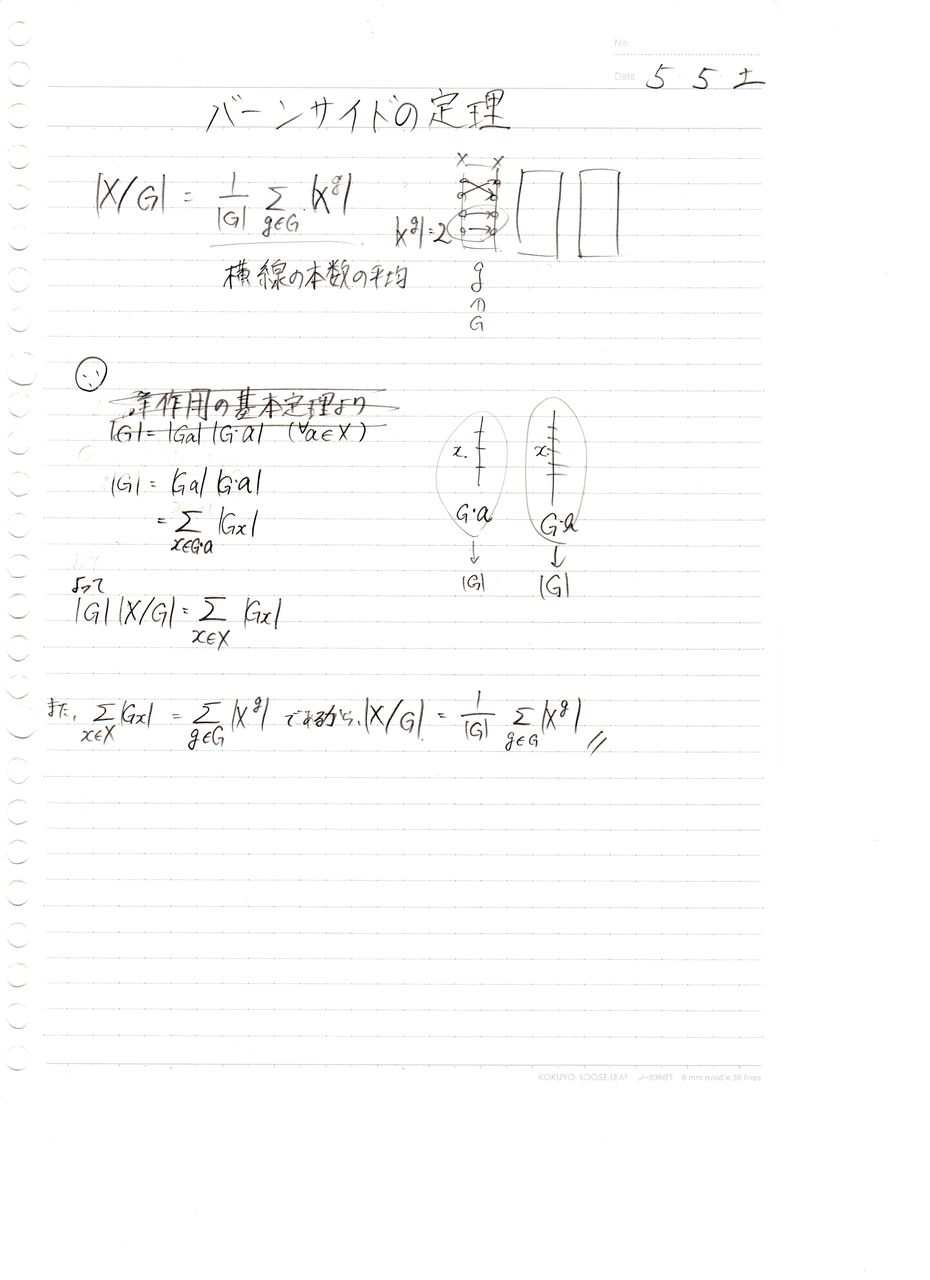 No.
Date 5 5 土
バーンサイドの定理
|X/G| = 1/|G| Σ_{g∈G} |X^g|
X X
|X^g|=2
横線の本数の平均
g
∩
G
∵
群作用の基本定理より
|G| = |Ga| |G·a| (∀a∈X)
|G| = |Ga| |G·a|
= Σ_{x∈G·a} |Gx|
x. x.
G·a G·a
↓ ↓
|G| |G|
よって
|G| |X/G| = Σ_{x∈X} |Gx|
また、Σ_{x∈X} |Gx| = Σ_{g∈G} |X^g| であるから、|X/G| = 1/|G| Σ_{g∈G} |X^g| //
KOKUYO LOOSE-LEAF ノ-836BT 6 mm ruled × 36 lines